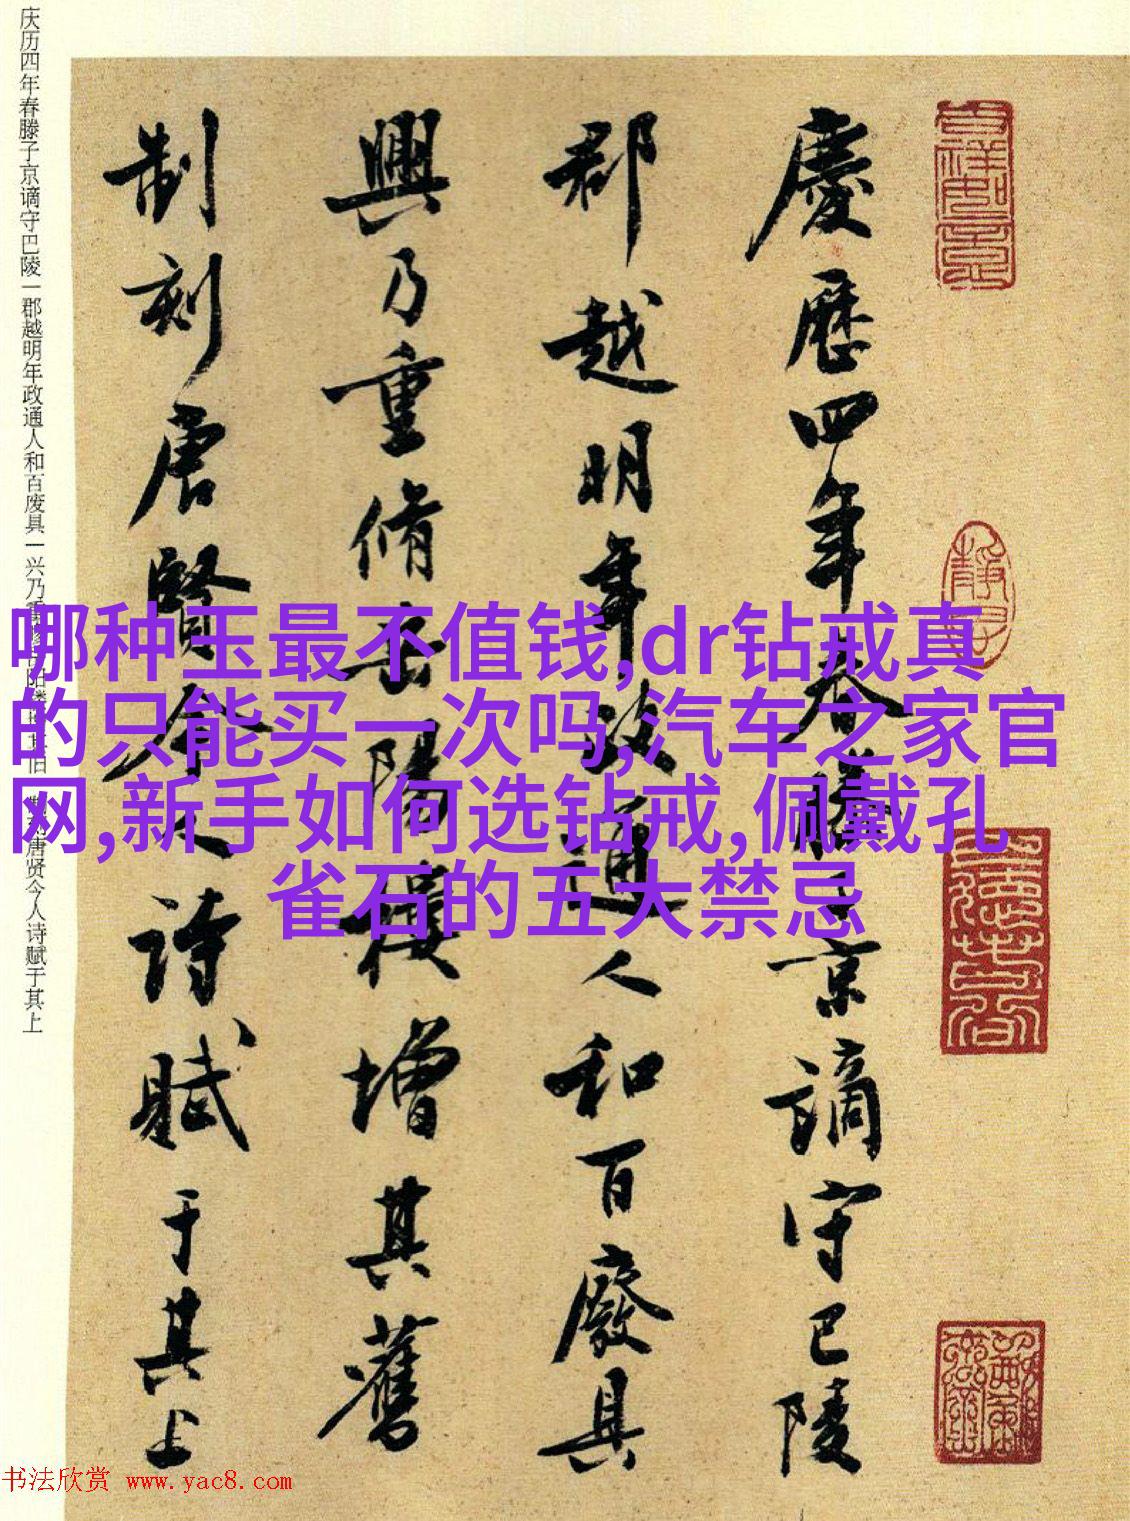 慶歷四年春滕子京謫守巴陵
郡越明年政通人和百廢具
興乃重脩岳陽樓增其舊
制刻唐賢今人詩賦于其上
庆历四年春滕子京谪守巴陵一郡越明年政通人和百废具一兴乃重修岳阳楼增其旧 制刻唐贤今人诗赋于其上
哪种玉最不值钱,dr钻戒真
的只能买一次吗,汽车之家官
网,新手如何选钻戒,佩戴孔
雀石的五大禁忌
书法欣赏 www.yac8.com